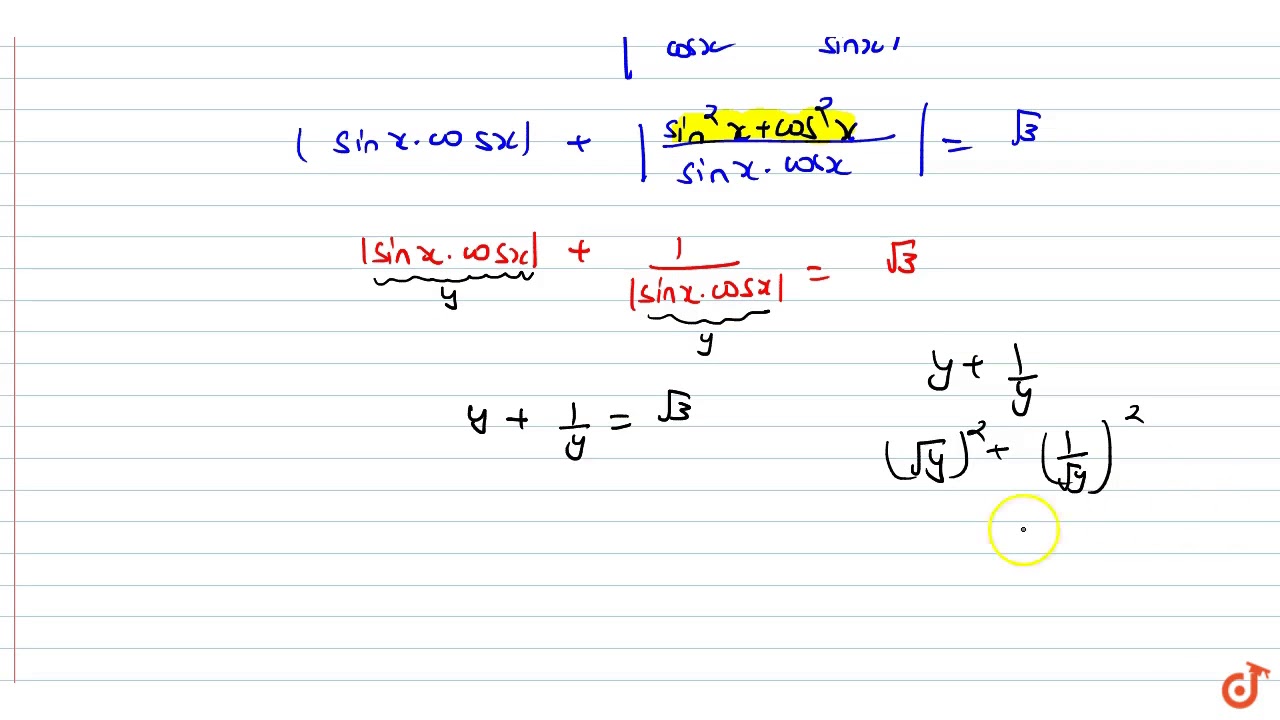 | cosx sinx |
|sinx.cosx| + |sin²x+cos²x / sinx.cosx| = √3
|sinx.cosx| + 1/|sinx.cosx| = √3
y y
y + 1/y
y + 1/y = √3
(√y)² + (1/√y)²